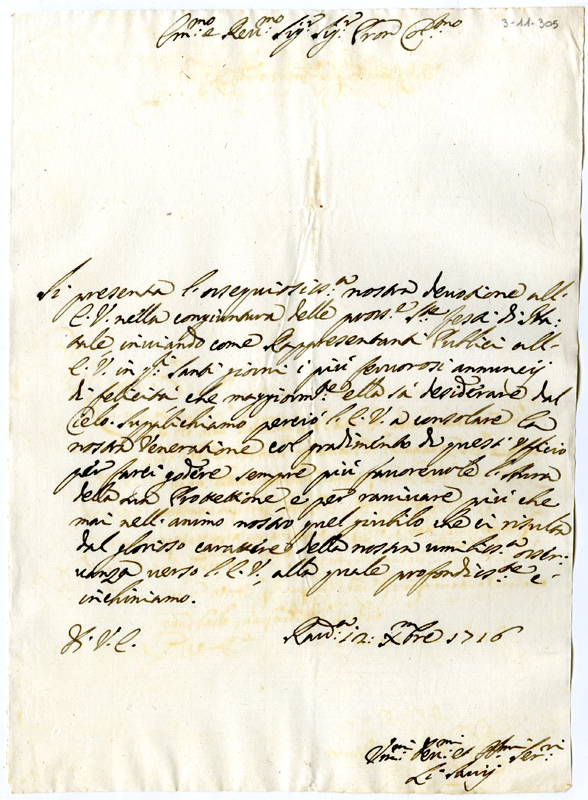 3-11-305
Em.mo e Rev.mo Sig.r Sig.r Pron Col.mo
Si presenta l'ossequiosiss.a nostra devotione all'
E. V. nella congiuntura delle pross.e S.te feste di Na=
tale inviando come Rappresentanti Publici all'
E. V. in q.ti santi giorni i più fervorosi annuncij
di felicità che maggiorm.te ella sà desiderare dal
Cielo. Supplichiamo perciò l'E. V. a consolare la
nostra Veneratione col gradimento di questo Ufficio
per farci godere sempre più favorevole l'Aura
della sua Protettione, e per ravivare più che
mai nell'animo nostro quel giubilo che ci risulta
dal glorioso carattere della nostra umiliss.a osser=
vanza verso l'E. V., alla quale profondiss.te c'
inchiniamo.
Di V. E.
Rav.a 12: Xbre 1716
Um.mi Dev.mi et Obl.mi Ser.ri
Li Savij